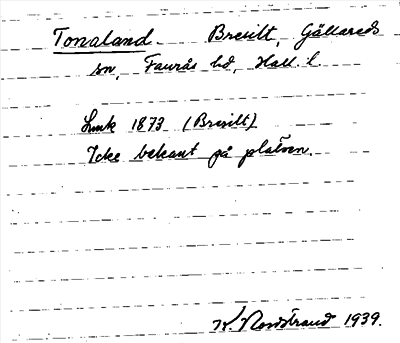 Tonaland. Brevilt, Gällareds
sn, Faurås hd, Hall. l.
Lmk 1873 (Brevilt)
Icke bekant på platsen.
Nordstrand 1939.